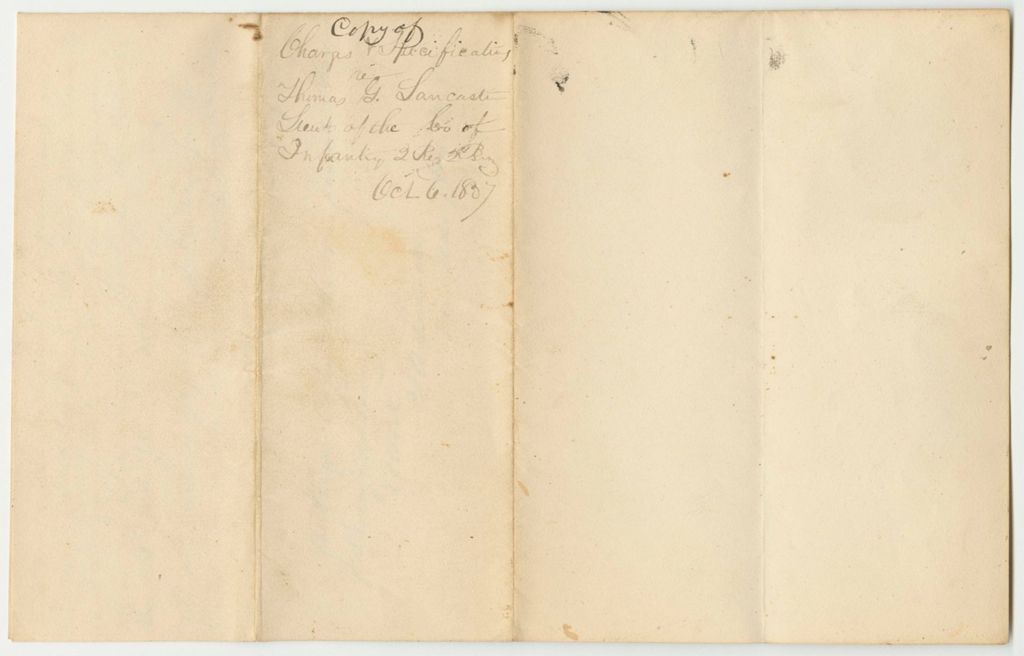 Copy of
Charges & Specifications
vs
Thomas G. Lancaster
Lieut of the Co of
Infantry 2 Reg 2 Brig
Oct 6. 1837